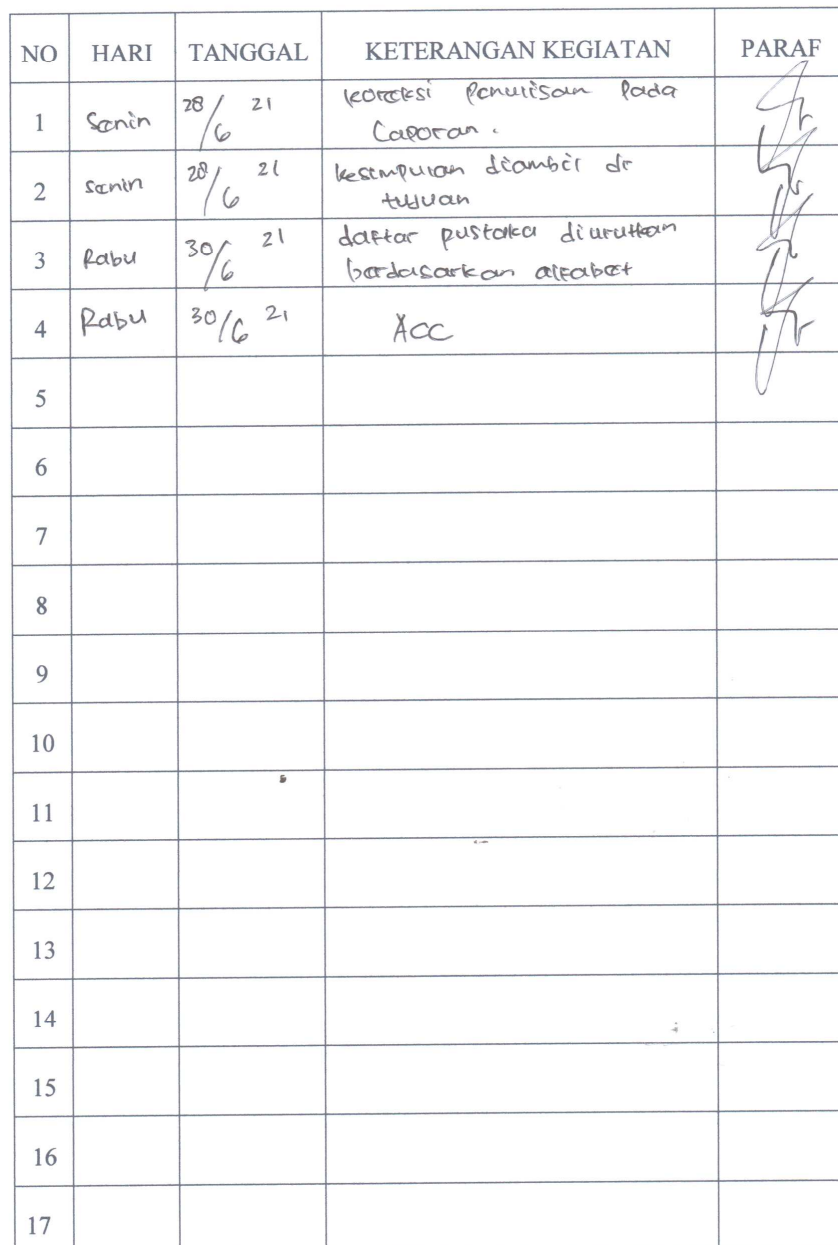 NO HARI TANGGAL KETERANGAN KEGIATAN PARAF
1 Senin 28/6 21 koreksi Penulisan Pada
Laporan.
2 senin 28/6 21 kesimpulan diambil dr
tujuan
3 Rabu 30/6 21 daftar pustaka diurutkan
berdasarkan alfabet
4 Rabu 30/6 21 ACC
5
6
7
8
9
10
11
12
13
14
15
16
17